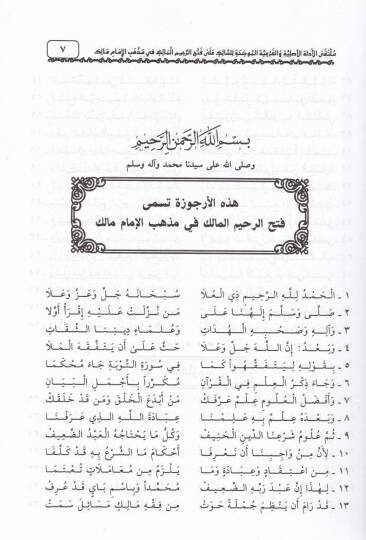 مُلْتَقَى الأدلة الأصلية والفرعية الموضحة للسالك على فتح الرحيم المالك في مذهب الإمام مالك ٧
بسم الله الرحمن الرحيم
وصلى الله على سيدنا محمد وآله وسلم
هذه الأرجوزة تسمى
فتح الرحيم المالك في مذهب الإمام مالك
١ ـ الْحَمْدُ لِلَّهِ الرَّحِيمِ ذِي الْعُلَا سُبْحَانَهُ جَلَّ وَعَزَّ وَعَلَا
٢ ـ صَلَّى وَسَلَّمَ إِلَهُنَا عَلَى مَنْ نُزِّلَتْ عَلَيْهِ إِقْرَأْ أَوَّلَا
٣ ـ وَآلِهِ وَصَحْبِهِ الْهُدَاتِ وَعُلَمَاءِ دِينِنَا الثِّقَاتِ
٤ ـ وَبَعْدُ: إِنَّ اللَّهَ جَلَّ وَعَلَا حَثَّ عَلَى أَنْ يَتَفَقَّهَ الْمَلَا
٥ ـ بِقَوْلِهِ لِيَتَفَقَّهُوا كَمَا فِي سُورَةِ التَّوْبَةِ جَاءَ مُحْكَمَا
٦ ـ وَجَاءَ ذِكْرُ الْعِلْمِ فِي الْقُرْآنِ مُكَرَّراً بِأَجْمَلِ الْبَيَانِ
٧ ـ وَأَفْضَلُ الْعُلُومِ عِلْمٌ عَرَّفَكْ مَنْ أَبْدَعَ الْخَلْقَ وَمَنْ قَدْ خَلَقَكْ
٨ ـ وَبَعْدَهُ عِلْمٌ بِهِ عَلِمْنَا عِبَادَةَ اللَّهِ الَّذِي عَرَفْنَا
٩ ـ ثُمَّ عُلُومُ شَرْعِنَا الدِّينِ الْحَنِيفْ وَكُلُّ مَا يَحْتَاجُهُ الْعَبْدُ الضَّعِيفْ
١٠ ـ لِأَنَّ مِنْ وَاجِبِنَا أَنْ نَعْرِفَا أَحْكَامَ مَا الشَّرْعُ بِهِ قَدْ كَلَّفَا
١١ ـ مِنِ اعْتِقَادٍ وَعِبَادَةٍ وَمَا يَلْزَمُ مِنْ مُعَامَلَاتٍ تُعْتَمَا
١٢ ـ لِهَذَا إِنَّ عَبْدَ رَبِّهِ الضَّعِيفْ مُحَمَّداً وَبِاسْمِ بَايِ قَدْ عُرِفْ
١٣ ـ قَدْ رَامَ أَنْ يَنْظِمَ جُمْلَةً حَوَتْ مِنْ فِقْهِ مَالِكٍ مَسَائِلَ سَمَتْ